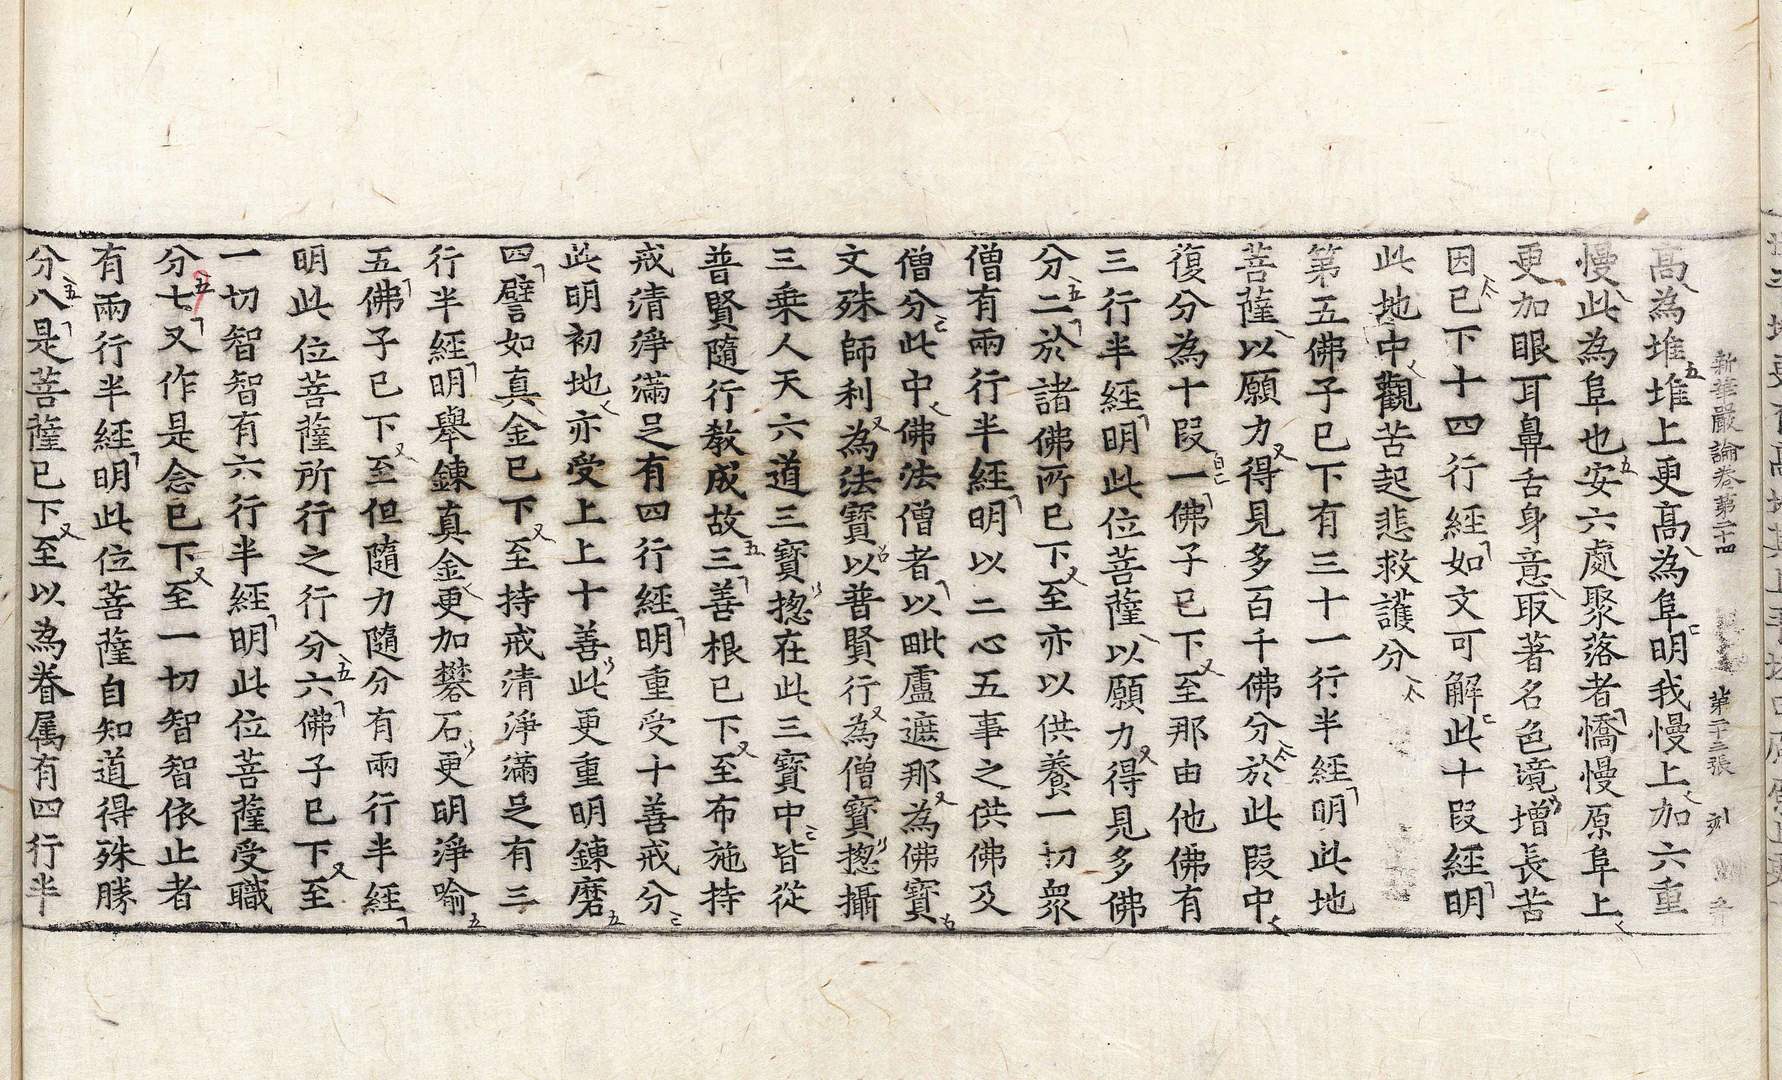 新華嚴論卷第二十四 第二十三張
高為堆堆上更高為阜明我慢上加六重
慢此為阜也安六處聚落者憍慢原阜上
更加眼耳鼻舌身意取著名色境增長苦
因已下十四行經如文可解此十段經明
此地中觀苦起悲救護分
第五佛子已下有三十一行半經明此地
菩薩以願力得見多百千佛分於此段中
復分為十段一佛子已下至那由他佛有
三行半經明此位菩薩以願力得見多佛
分二於諸佛所已下至亦以供養一切眾
僧有兩行半經明以二心五事之供佛及
僧分此中佛法僧者以毗盧遮那為佛寶
文殊師利為法寶以普賢行為僧寶揔攝
三乘人天六道三寶揔在此三寶中皆從
普賢隨行教成故三善根已下至布施持
戒清淨滿足有四行經明重受十善戒分
此明初地亦受上上十善此更重明鍊磨
四譬如真金已下至持戒清淨滿足有三
行半經明舉鍊真金更加礬石更明淨喻
五佛子已下至但隨力隨分有兩行半經
明此位菩薩所行之行分六佛子已下至
一切智智有六行半經明此位菩薩受職
分七又作是念已下至一切智智依止者
有兩行半經明此位菩薩自知道得殊勝
分八是菩薩已下至以為眷属有四行半